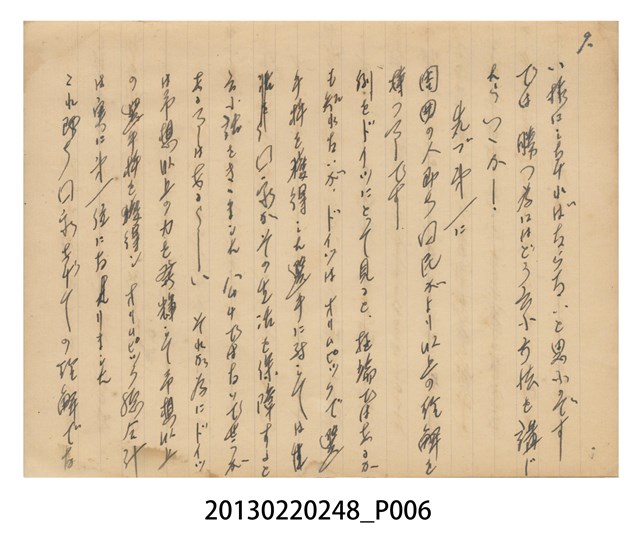 9.
い様にしなければならないと思ふのです
では 勝つ為にはどう云ふ方法を講じ
たらいゝか！
先づ第一に
周囲の人即ち国民がより以上の理解を
持つ事です
例をドイツにとって見ると、極端ではあるが
も知れないが、ドイツは オリムピックで 選
手権を獲得した選手に対しては生
活を 国家がその生活を保障すると
云ふ話をきゝました 公けではないでせうが
あるにはあるらしい それが為にドイツ
は予想以上の力を発揮して予想以上
の選手権を獲得し オリムピック総合計
は実に第一位になりました
これ即ち国家としての理解であ
20130220248_P006